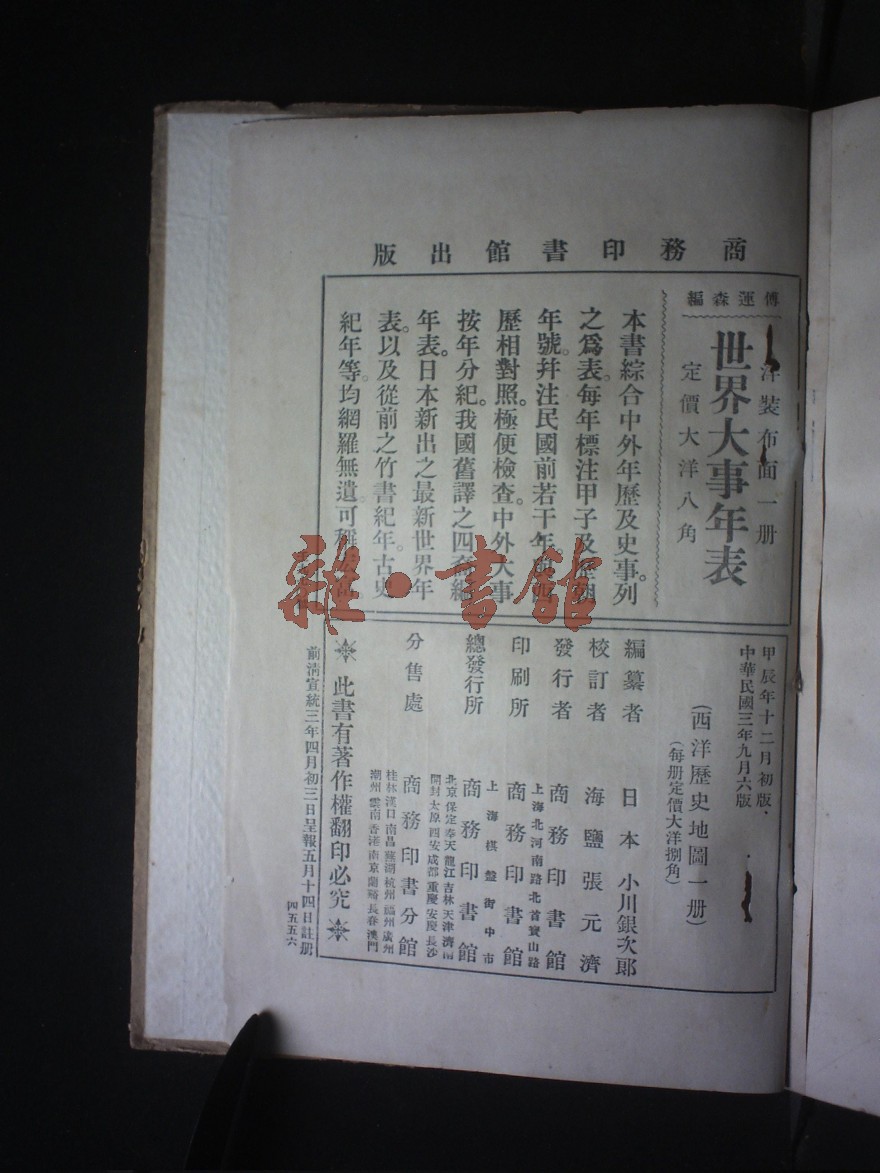 商務印書館出版
傅運森編
世界大事年表
洋裝布面一册
定價大洋八角
本書綜合中外年歷及史事。列
之爲表。每年標注甲子及歷朝
年號。幷注民國前若干年。與西
歷相對照。極便檢查。中外大事
按年分紀。我國舊譯之四裔編
年表。日本新出之最新世界年
表。以及從前之竹書紀年。古史
紀年等。均網羅無遺。可稱
甲辰年十二月初版
中華民國三年九月六版
(西洋歷史地圖一册)
(每册定價大洋捌角)
編纂者 日本 小川銀次郞
校訂者 海鹽張元濟
發行者 商務印書館
上海北河南路北首寶山路
印刷所 商務印書館
上海棋盤街中市
總發行所 商務印書館
北京保定奉天龍江吉林天津濟南
開封太原西安成都重慶安慶長沙
分售處 商務印書分館
桂林漢口南昌蕪湖杭州福州廣州
潮州雲南香港南京蘭谿長春澳門
此書有著作權翻印必究
前淸宣統三年四月初三日呈報五月十四日註册
四五五六
雜·書館